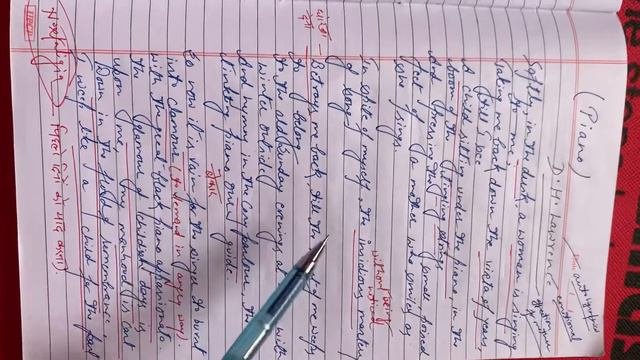 (Piano)
D. H. Lawrence
Softly, in the dusk, a woman is singing
to me;
Taking me back down the vista of years,
till I see
A child sitting under the piano, in the
boom of the tingling strings
And pressing the small, poised
feet of a mother who smiles as
she sings.
In spite of myself, the insidious mastery
of song
Betrays me back, till the of me weeps
to belong
To the old Sunday evenings at with
winter outside
And hymns in the cosy parlour, the
tinkling piano our guide.
So now it is vain for the singer to burst
into clamour (to demand in angry way)
with the great black piano appassionato.
The glamour of childish days is
upon me, my manhood is cast
Down in the flood of remembrance
I weep like a child for the past